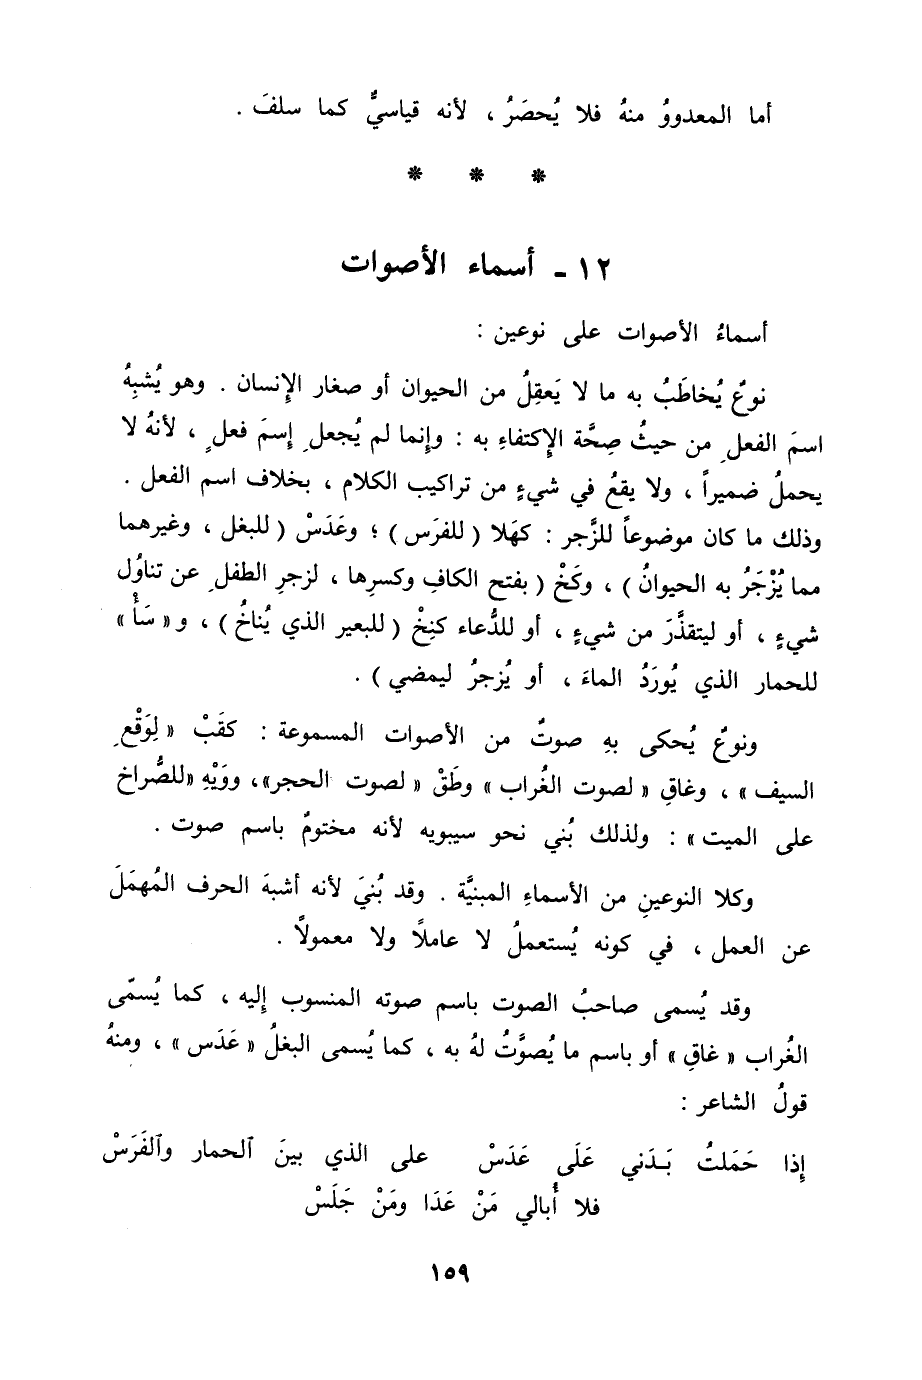 أما المعدووُ منهُ فلا يُحصَرُ ، لأنه قياسيٌّ كما سلفَ .
* * *
١٢ - أسماء الأصوات
أسماءُ الأصوات على نوعين :
نوعٌ يُخاطَبُ به ما لا يَعقِلُ من الحيوان أو صغار الإِنسان . وهو يُشبِهُ
اسمَ الفعلِ من حيثُ صِحَّة الإِكتفاءِ به : وإِنما لم يُجعلِ إِسمَ فعلٍ ، لأنهُ لا
يحملُ ضميراً ، ولا يقعُ في شيءٍ من تراكيب الكلام ، بخلاف اسم الفعل .
وذلك ما كان موضوعاً للزَّجر : كهَلا ( للفرَس ) ؛ وعَدَسْ ( للبغل ، وغيرهما
مما يُزْجَرُ به الحيوانُ ) ، وكَخْ ( بفتح الكافِ وكسرِها ، لزجرِ الطفلِ عن تناوُل
شيءٍ ، أو ليتقذَّرَ من شيءٍ ، أو للدُّعاء كنِخْ ( للبعير الذي يُناخُ ) ، و« سَأْ »
للحمار الذي يُورَدُ الماءَ ، أو يُزجرُ ليمضي ) .
ونوعٌ يُحكى بهِ صوتٌ من الأصوات المسموعة : كقَبْ « لِوَقْعِ
السيف » ، وغاقِ « لصوت الغُراب » وطَقْ « لصوت الحجر»، ووَيْهِ «للصُّراخ
على الميت » : ولذلك بُني نحو سيبويه لأنه مختومٌ باسم صوت .
وكلا النوعينِ من الأسماءِ المبنيَّة . وقد بُنيَ لأنه أشبهَ الحرف المُهمَلَ
عن العمل ، في كونه يُستعملُ لا عاملاً ولا معمولاً .
وقد يُسمى صاحبُ الصوت باسم صوته المنسوب إليه ، كما يُسمّى
الغُراب « غاقِ » أو باسم ما يُصوَّتُ لهُ به ، كما يُسمى البغلُ « عَدَس » ، ومنهُ
قولُ الشاعر :
إِذا حَمَلتُ بَدَني عَلَى عَدَسْ على الذي بينَ ٱلحمار وٱلفَرَسْ
فلا أُبالي مَنْ عَدَا ومَنْ جَلَسْ
١٥٩